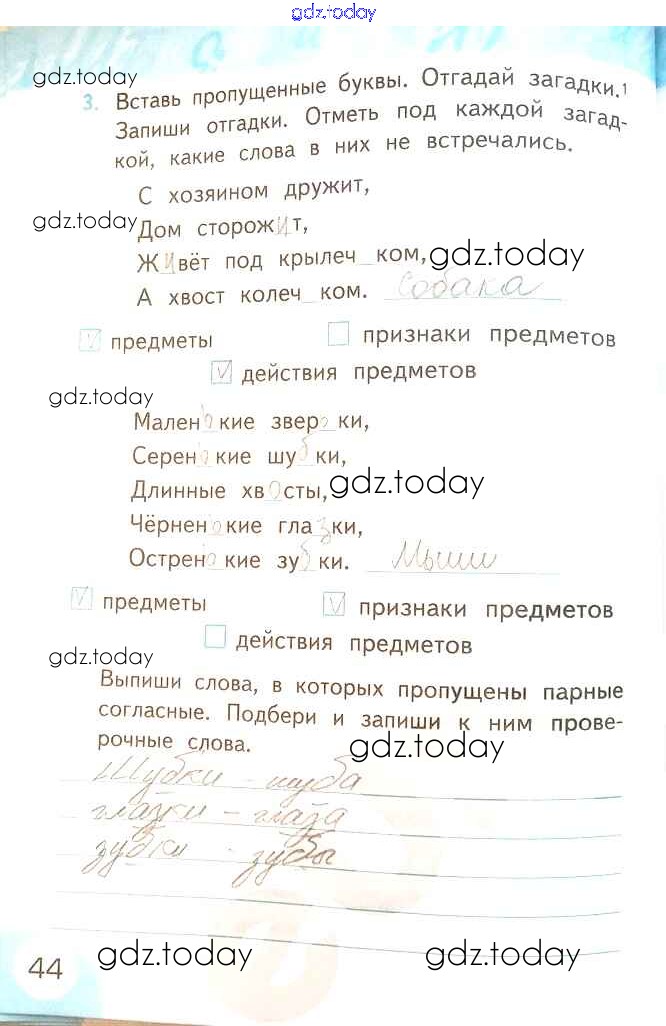 gdz.today
gdz.today
3. Вставь пропущенные буквы. Отгадай загадки.¹
Запиши отгадки. Отметь под каждой загад-
кой, какие слова в них не встречались.
С хозяином дружит,
gdz.today
Дом сторожит,
Живёт под крылеч_ком, gdz.today
А хвост колеч_ком. Собака
V предметы признаки предметов
V действия предметов
gdz.today
Маленькие зверьки,
Серенькие шубки,
Длинные хвосты, gdz.today
Чёрненькие глазки,
Остренькие зубки. Мыши
V предметы V признаки предметов
действия предметов
gdz.today
Выпиши слова, в которых пропущены парные
согласные. Подбери и запиши к ним прове-
рочные слова. gdz.today
Шубки - шуба
глазки - глаза
зубки - зубы
44 gdz.today gdz.today